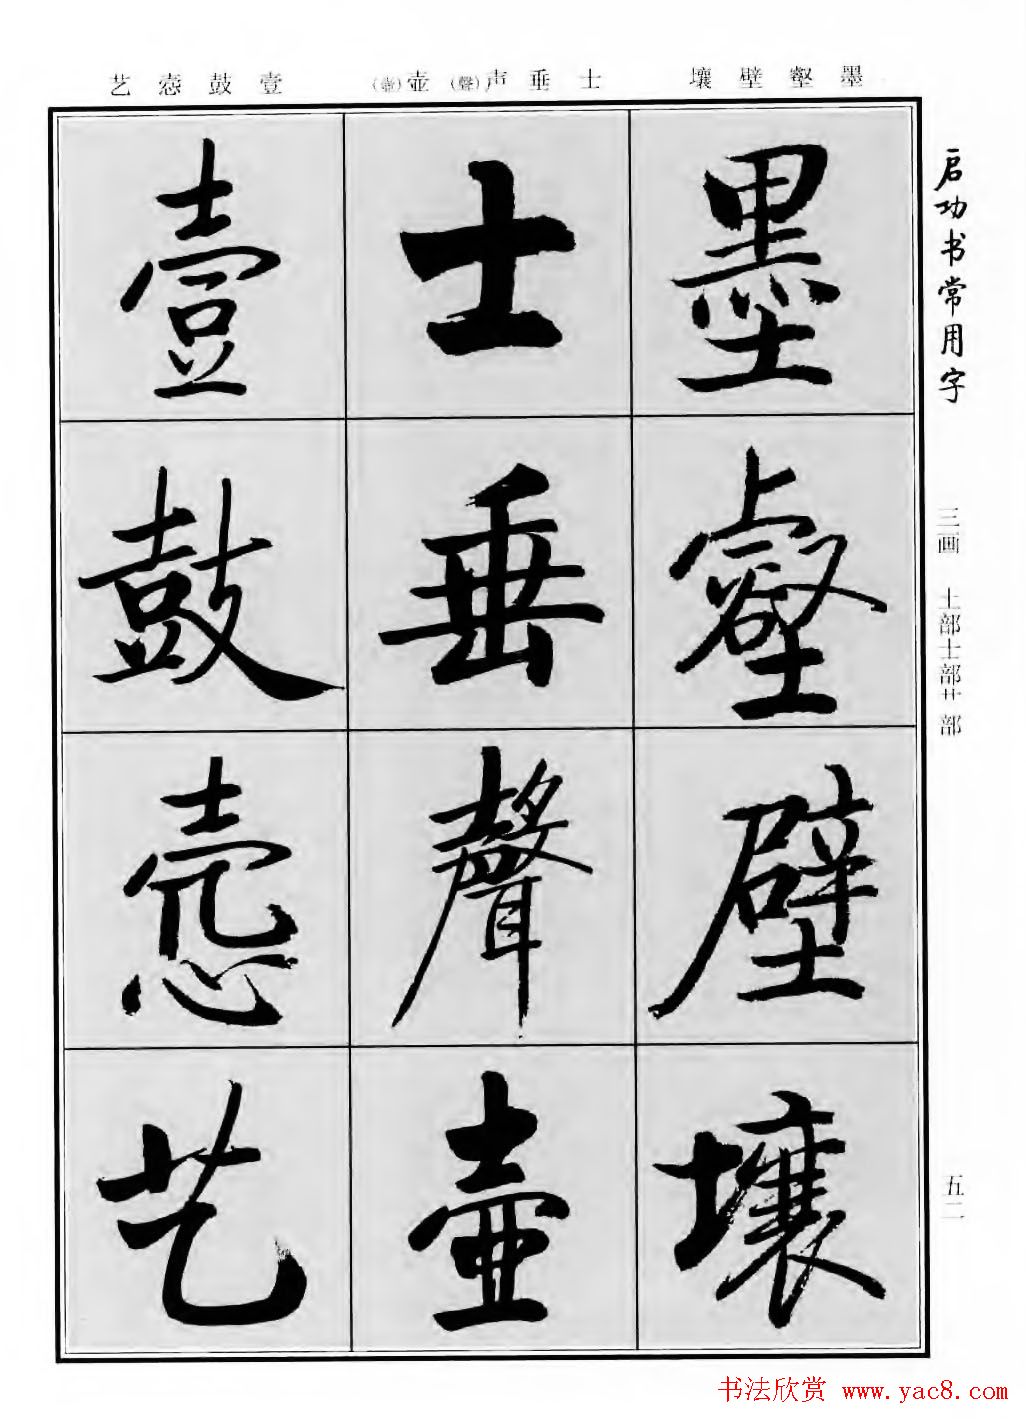 启功书常用字
三画 土部士部艹部
五二
墨壑壁壤
士垂声(聲)壶(壺)
壹鼓悫艺
墨壑壁壤
士垂聲壺
壹鼓悫艺
书法欣赏 www.yac8.com